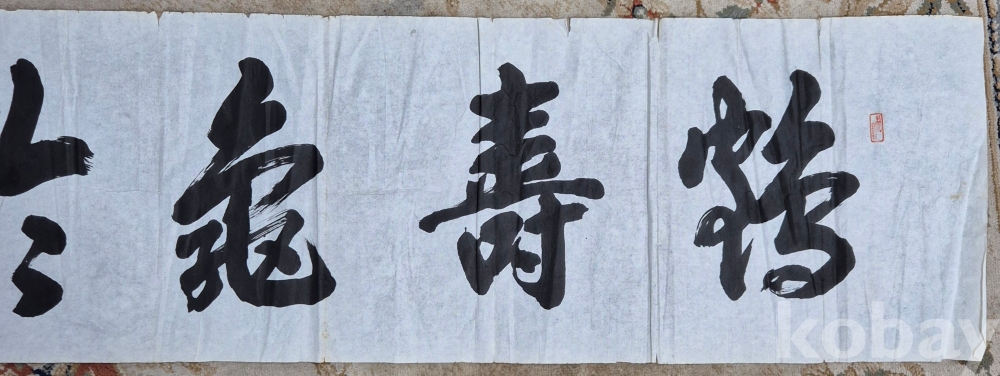 鶴壽龜
kobay